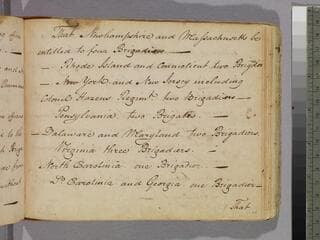 That Newhampshire and Massachusetts be
entitled to four Brigadiers —
— Rhode Island and Connecticut two Brigdrs
— New York and New Jersey including
Colonel Hazens Regimt two Brigadiers —
— Pensylvania two Brigrs. —
— Delaware and Maryland two Brigadiers.
Virginia three Brigadiers. —
North Carolinia one Brigadier. —
So Carolinia and Georgia one Brigadier —
That